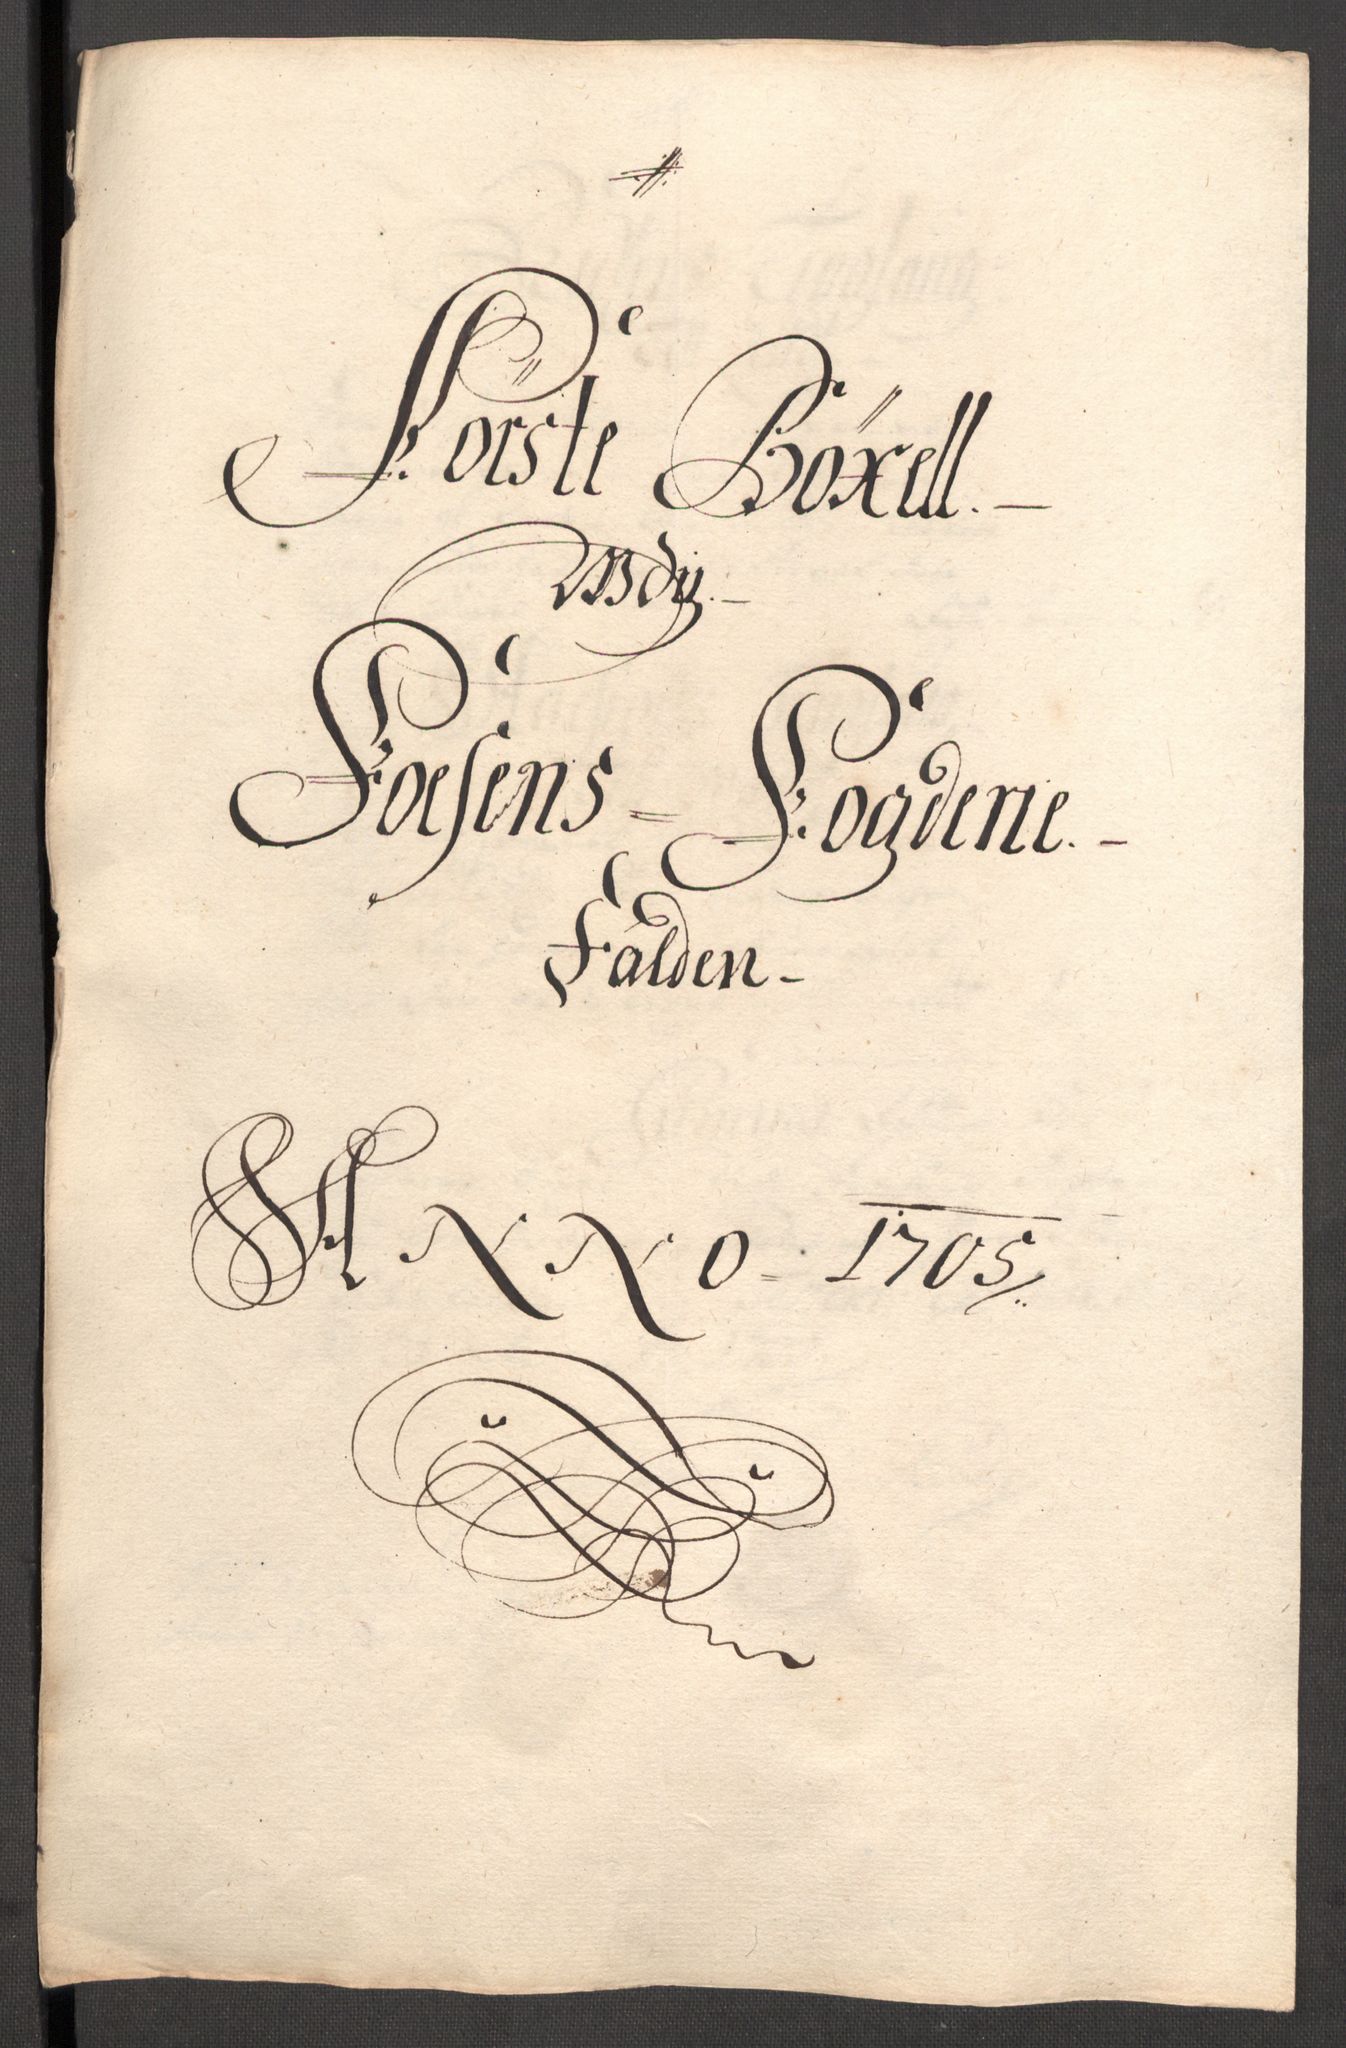 Förste Böxell.
Udj.
Foesens Fogderie.
Falden
ANNO 1705